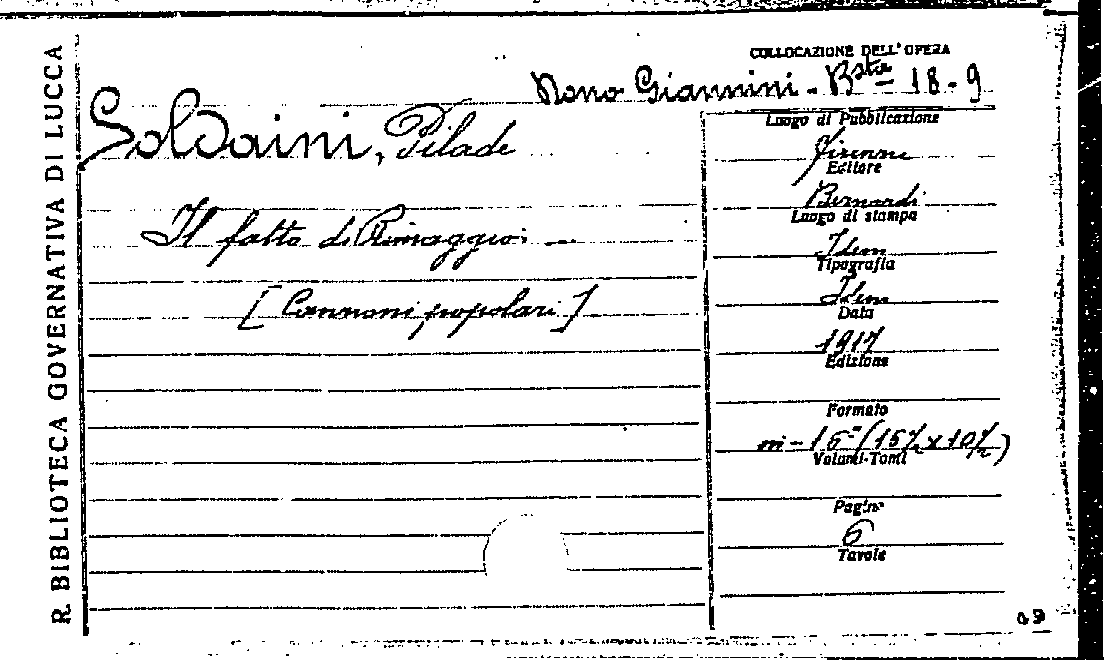 R. BIBLIOTECA GOVERNATIVA DI LUCCA
COLLOCAZIONE DELL' OPERA
Nono Giannini - Bsta - 18 - 9
Soldaini, Pilade
Il fatto di Rimaggio: —
[Canzoni popolari]
Luogo di Pubblicazione
Firenze
Editore
Bernardi
Luogo di stampa
Idem
Tipografia
Idem
Data
1917
Edizione
Formato
in - 16° (15½ x 10½)
Volumi-Tomi
Pagine
6
Tavole